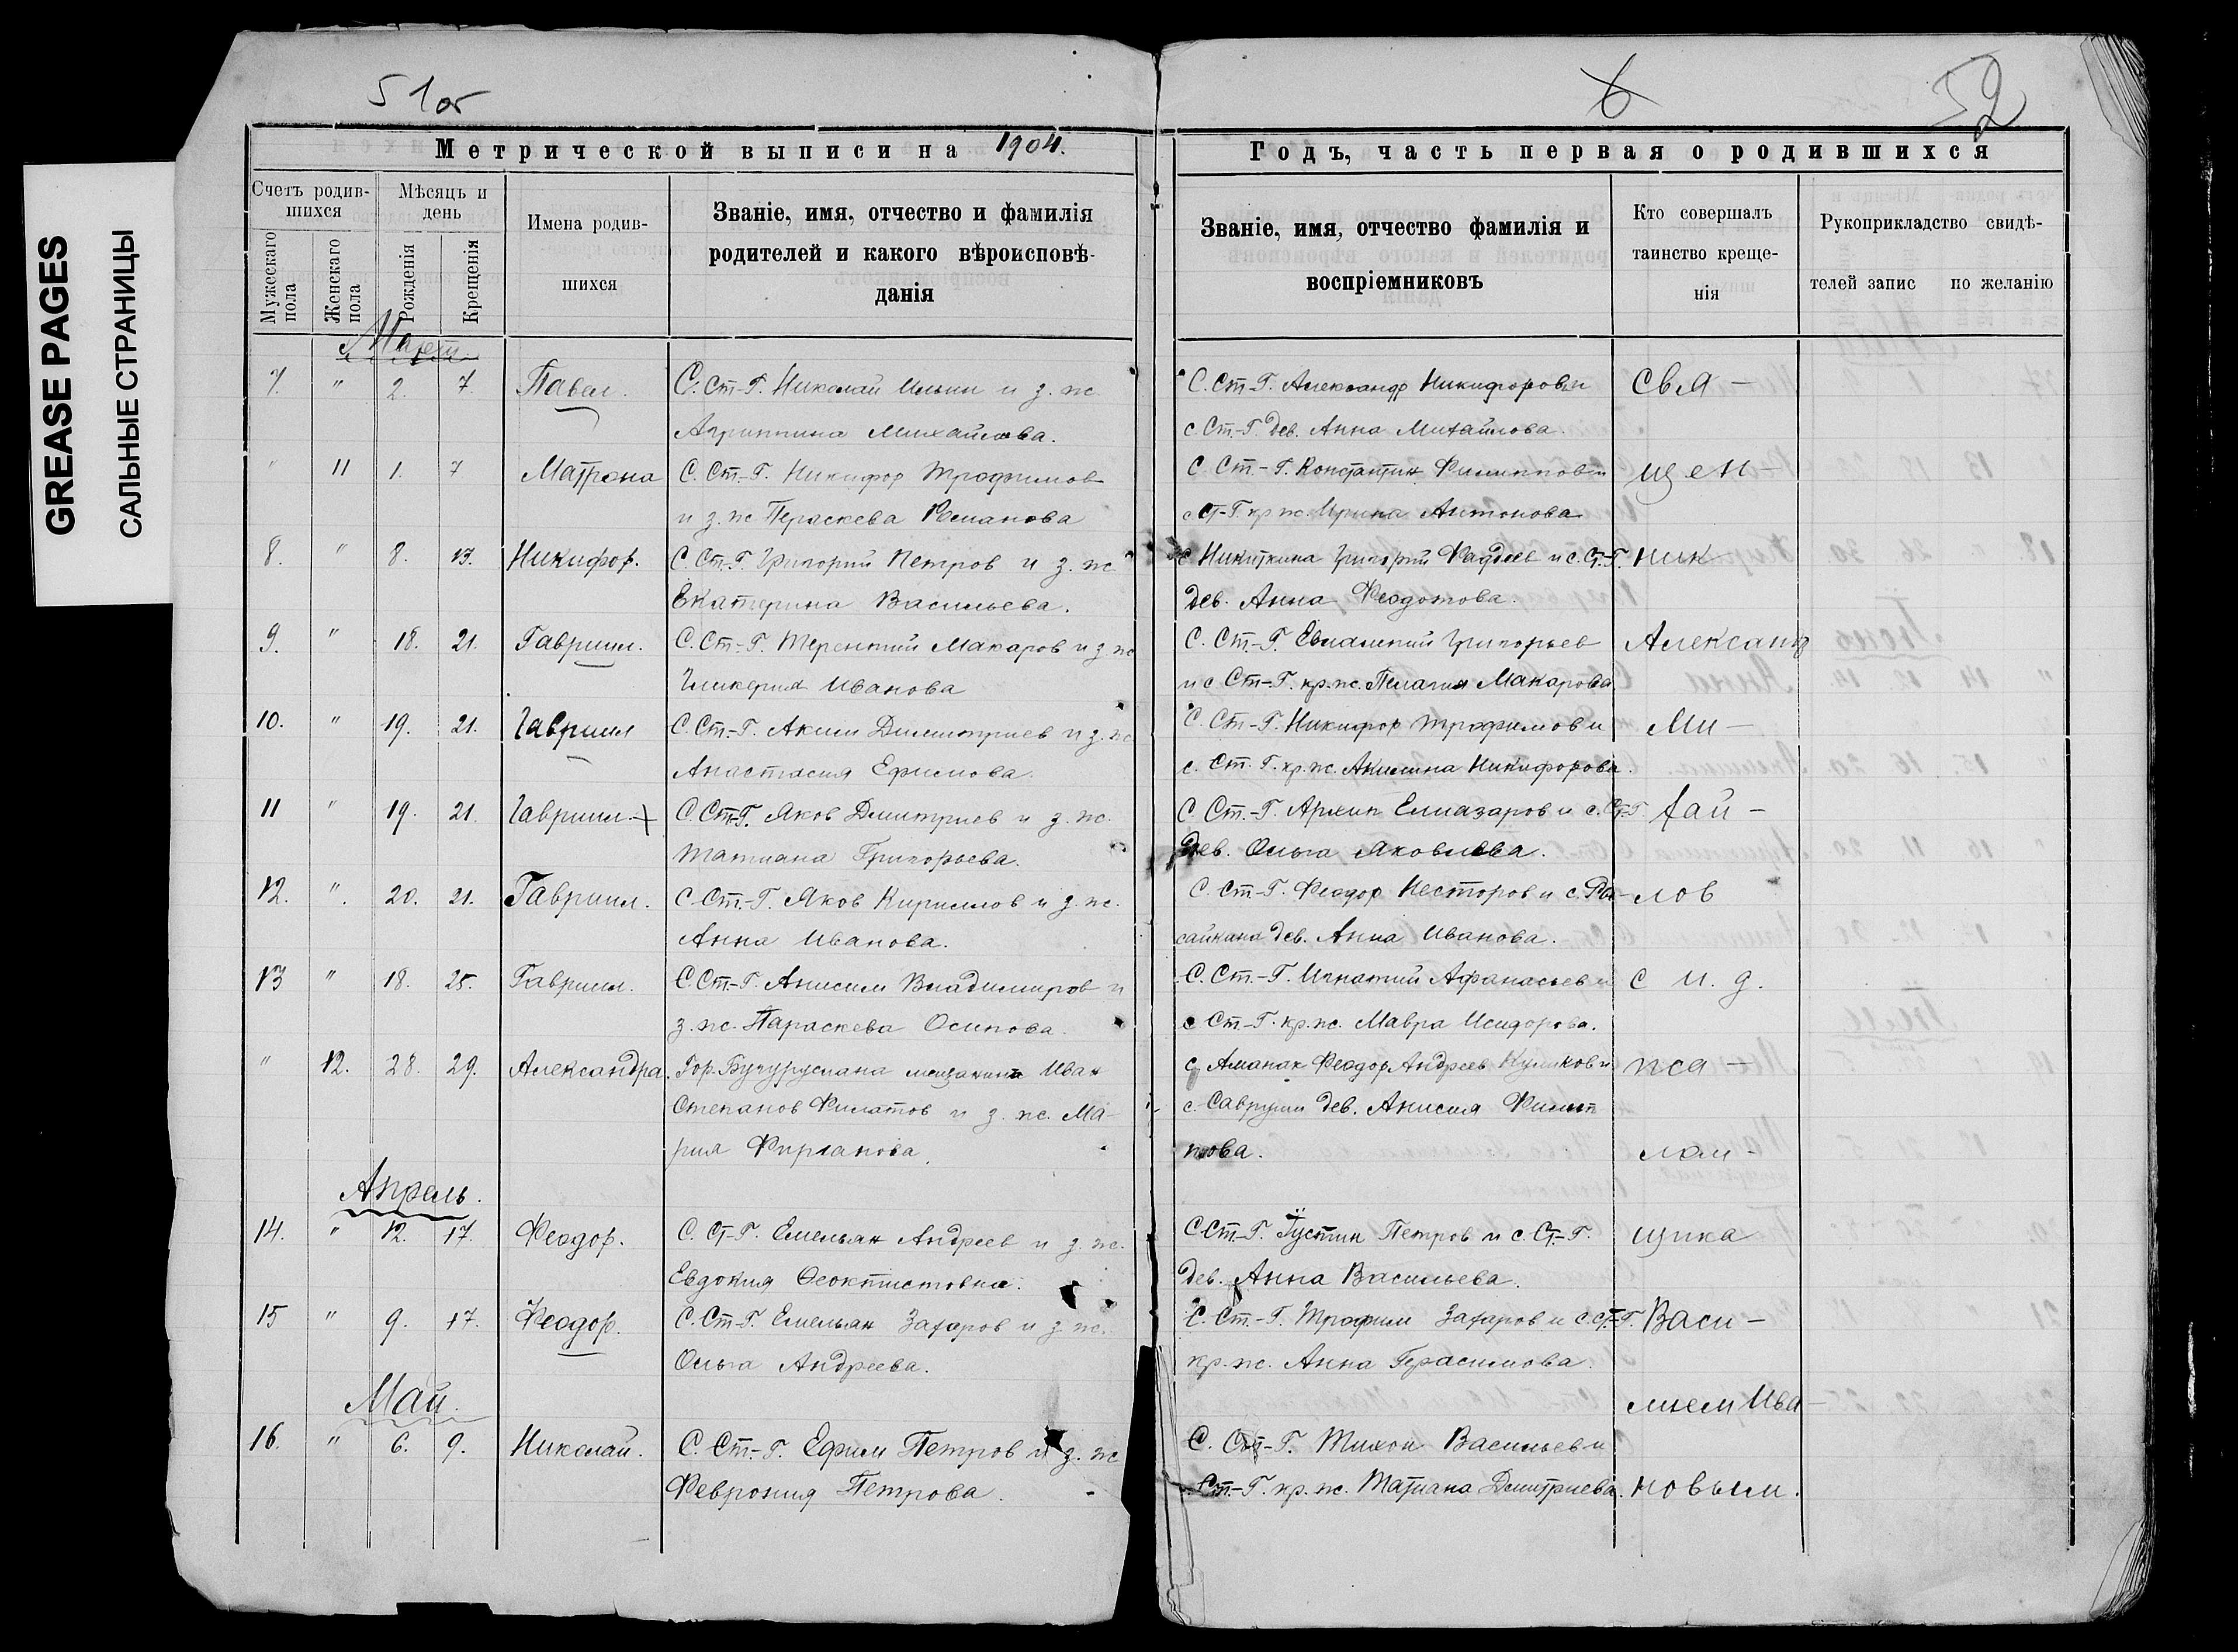 GREASE PAGES
САЛЬНЫЕ СТРАНИЦЫ
51об
6
52
Метрической выписи на 1904.
Годъ, часть первая о родившихся
Счетъ родив-
шихся
Мѣсяць и
день
Мужескаго
пола
Женскаго
пола
Рожденія
Крещенія
Имена родив-
шихся
Званіе, имя, отчество и фамилія
родителей и какого вѣроисповѣ-
данія
Званіе, имя, отчество фамилія и
воспріемниковъ
Кто совершалъ
таинство креще-
нія
Рукоприкладство свидѣ-
телей запис по желанію
Март
7. " 2. 7. Павел. С. Ст.-Г. Николай Ильин и з. ж. С. Ст.-Г. Александр Никифоров и Свя-
Агриппина Михайлова. с. Ст.-Г. дев. Анна Михайлова.
" 11 1. 7 Матрона С. Ст.-Г. Никифор Трофимов С. Ст.-Г. Константин Филиппов и щен-
и з. ж. Параскева Романова с Ст-Г. кр. ж. Ирина Антонова
8. " 8. 13. Никифор. С. Ст.-Г. Григорий Петров и з. ж. с Никиткина Григорий Фаддеев и с. Ст-Г. ник
Екатерина Васильева. дев. Анна Феодотова.
9. " 18. 21. Гавриил. С. Ст.-Г. Терентий Макаров и з. ж С. Ст.-Г. Евлампий Григорьев Александ
Гликерия Иванова и с Ст.-Г. кр. ж. Пелагия Макарова.
10. " 19. 21. Гавриил С. Ст.-Г. Аким Димитриев и з. ж С. Ст.-Г. Никифор Трофимов и Ми-
Анастасия Ефимова. с. Ст. Г. кр. ж. Акилина Никифорова.
11 " 19. 21. Гавриил. С. Ст-Г. Яков Димитриев и з. ж. С Ст.-Г. Архип Елиазаров и с. Ст-Г. хай-
Татиана Григорьева. дев. Ольга Яковлева.
12. ". 20. 21. Гавриил. С. Ст.-Г. Яков Кириллов и з. ж. С. Ст-Г. Феодор Несторов и с. Ра- лов
Анна Иванова. сайкина дев. Анна Иванова.
13 " 18. 25. Гавриил. С. Ст.-Г. Анисим Владимиров и С. Ст.-Г. Игнатий Афанасьев и с и. д.
з. ж. Параскева Осипова. с Ст.-Г. кр. ж. Мавра Исидорова.
" 12. 28. 29. Александра. Гор. Бугуруслана мещанин Иван с. Аманак Феодор Андреев Куликов и пса-
Степанов Филатов и з. ж. Ма- с. Савруши дев. Анисия Филип
рия Фирсанова. пова. лом-
Апрель.
14. " 12. 17. Феодор. С. Ст-Г. Емельян Андреев и з. ж. С. Ст.-Г. Іустин Петров и с. Ст-Г. щика
Евдокия Феоктистовна. дев. Анна Васильева.
15 " 9. 17. Феодор. С. Ст-Г. Емельян Захаров и з. ж. С. Ст.-Г. Трофим Захаров и с. Ст-Г. Васи-
Ольга Андреева. кр. ж. Анна Герасимова.
Май. лием Ива-
16. " 6. 9. Николай. С. Ст.-Г. Ефим Петров и з. ж С. Ст-Г. Тихон Васильев и
Феврония Петрова. Ст-Г. кр. ж. Татиана Димитриева. новым.